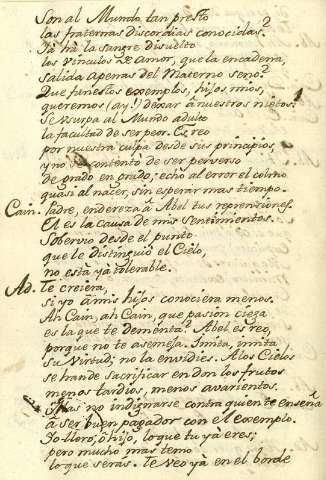 Son al Mundo tan presto
las fraternas discordias conocidas?
Ya hà la sangre disuelto
los vinculos de Amor, que la encadena,
salida apenas del Materno seno?
Que funestos exemplos, hijos mios,
queremos (ay!) dexar à nuestros nietos?
Se usurpa al Mundo adulto
la facultad de ser peor. Es reo
por nuestra culpa desde sus principios,
y no contento de ser perverso
de grado en grado; echò al error el colmo
quasi al nacer, sin esperar mas tiempo.
Cain. Padre, endereza à Abel tus reprensiones.
El es la causa de mis sentimientos.
Sobervio desde el punto
que le distinguiò el Cielo,
no està yà tolerable.
Ad. Te creiera,
si yo à mis hijos conociera menos.
Ah Cain, ah Cain, que pasion ciega
es la que te dementa? Abel es reo,
porque no te asemeja. Imita, imita
su virtud; no la envidies. A los Cielos
se han de sacrificar en don los frutos
menos tardios, menos avarientos.
Mas no indignarse contra quien te enseña
à ser buen pagador con el exemplo.
Yo lloro, ò hijo, lo que tu yà eres;
pero mucho mas temo
lo que seràs. Te veo yà en el borde